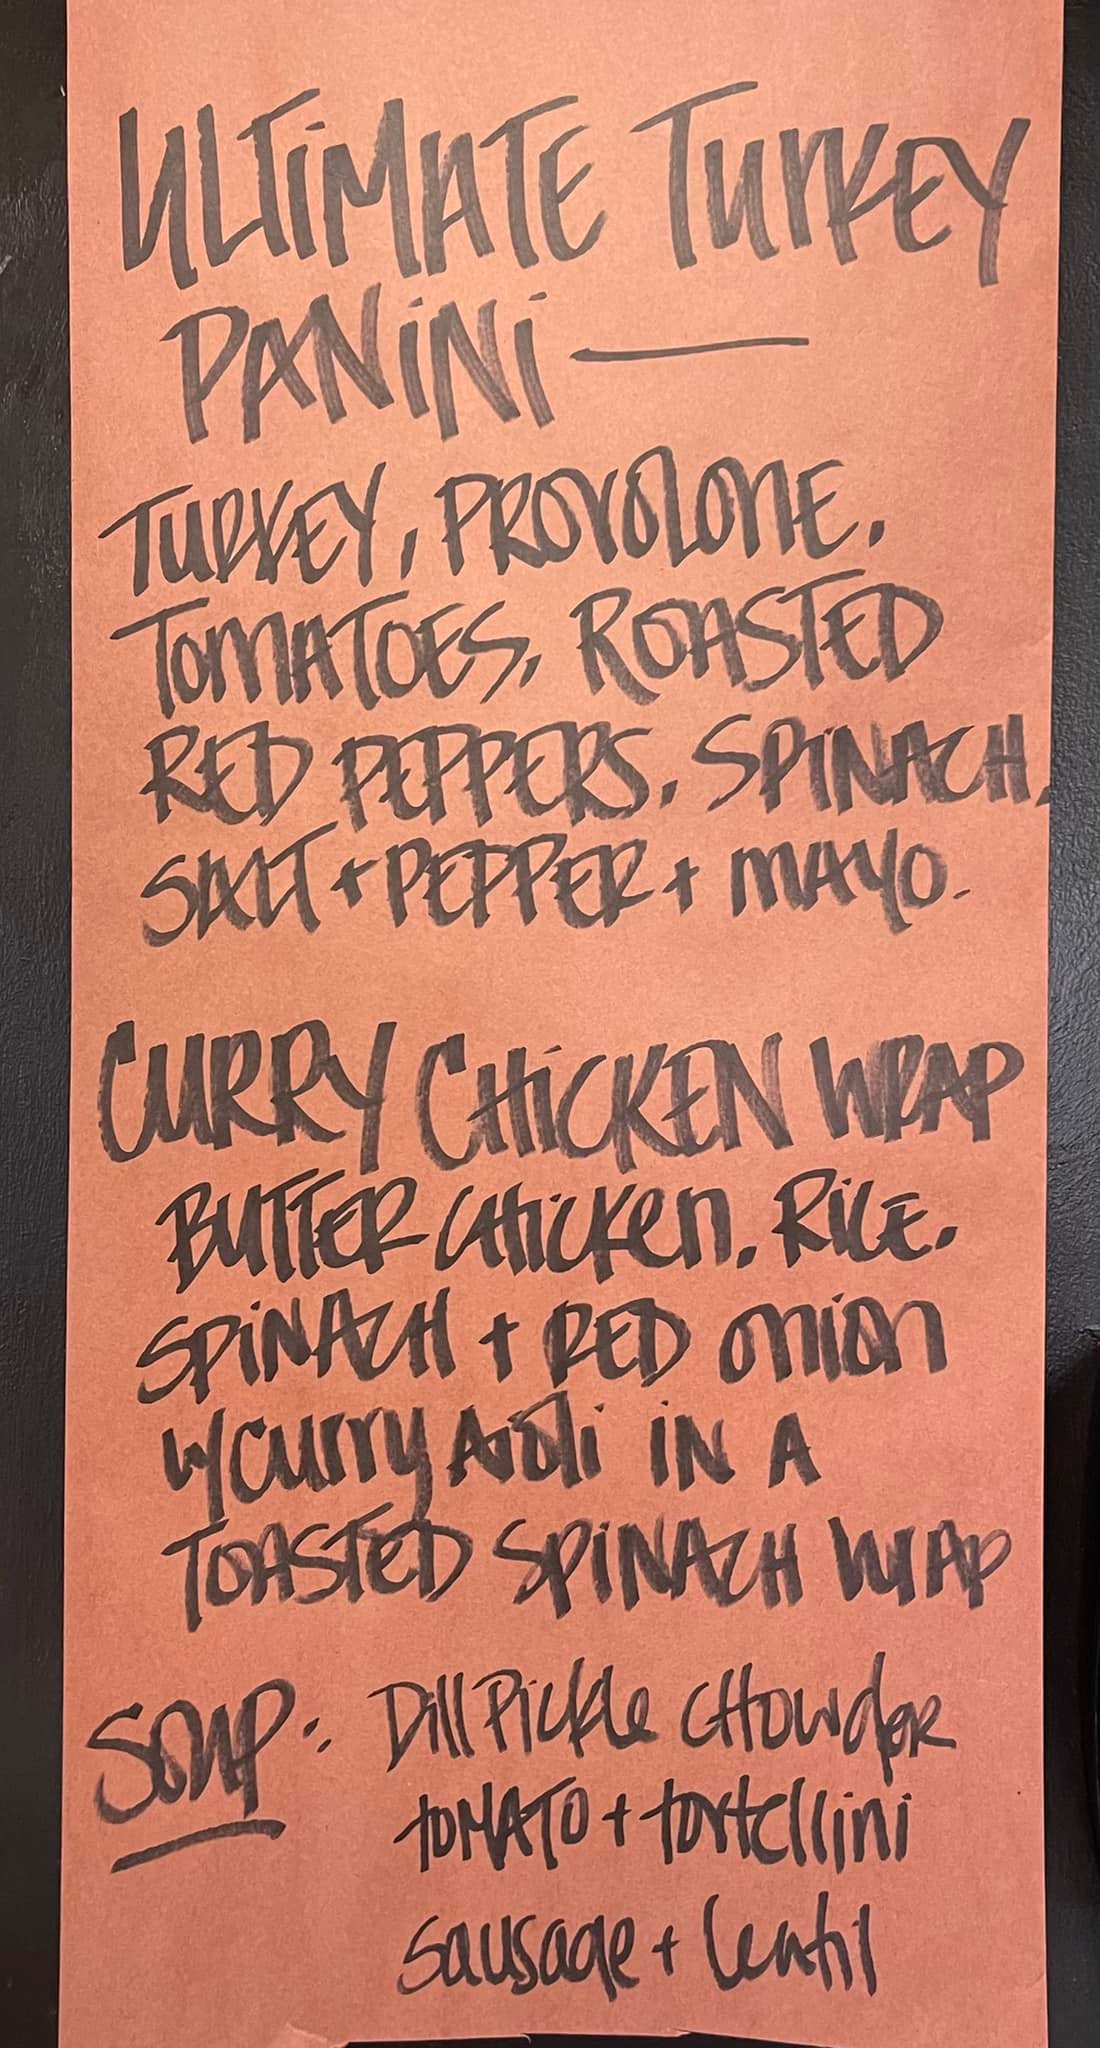 ULTiMATE TurKEY
PANiNi —
TURKEY, PROVOLONE,
TOMATOES, ROASTED
RED PEPPERS, SPINACH,
SALT + PEPPER + MAYO.
CURRY CHiCKEN WRAP
BUTTER CHicKen, RiCE,
SPiNACH + RED onion
w/curry Aioli iN A
TOASTED SPiNACH WRAP
SOUP: Dill Pickle CHOWdeR
tOMATO + tortellini
Sausage + lentil